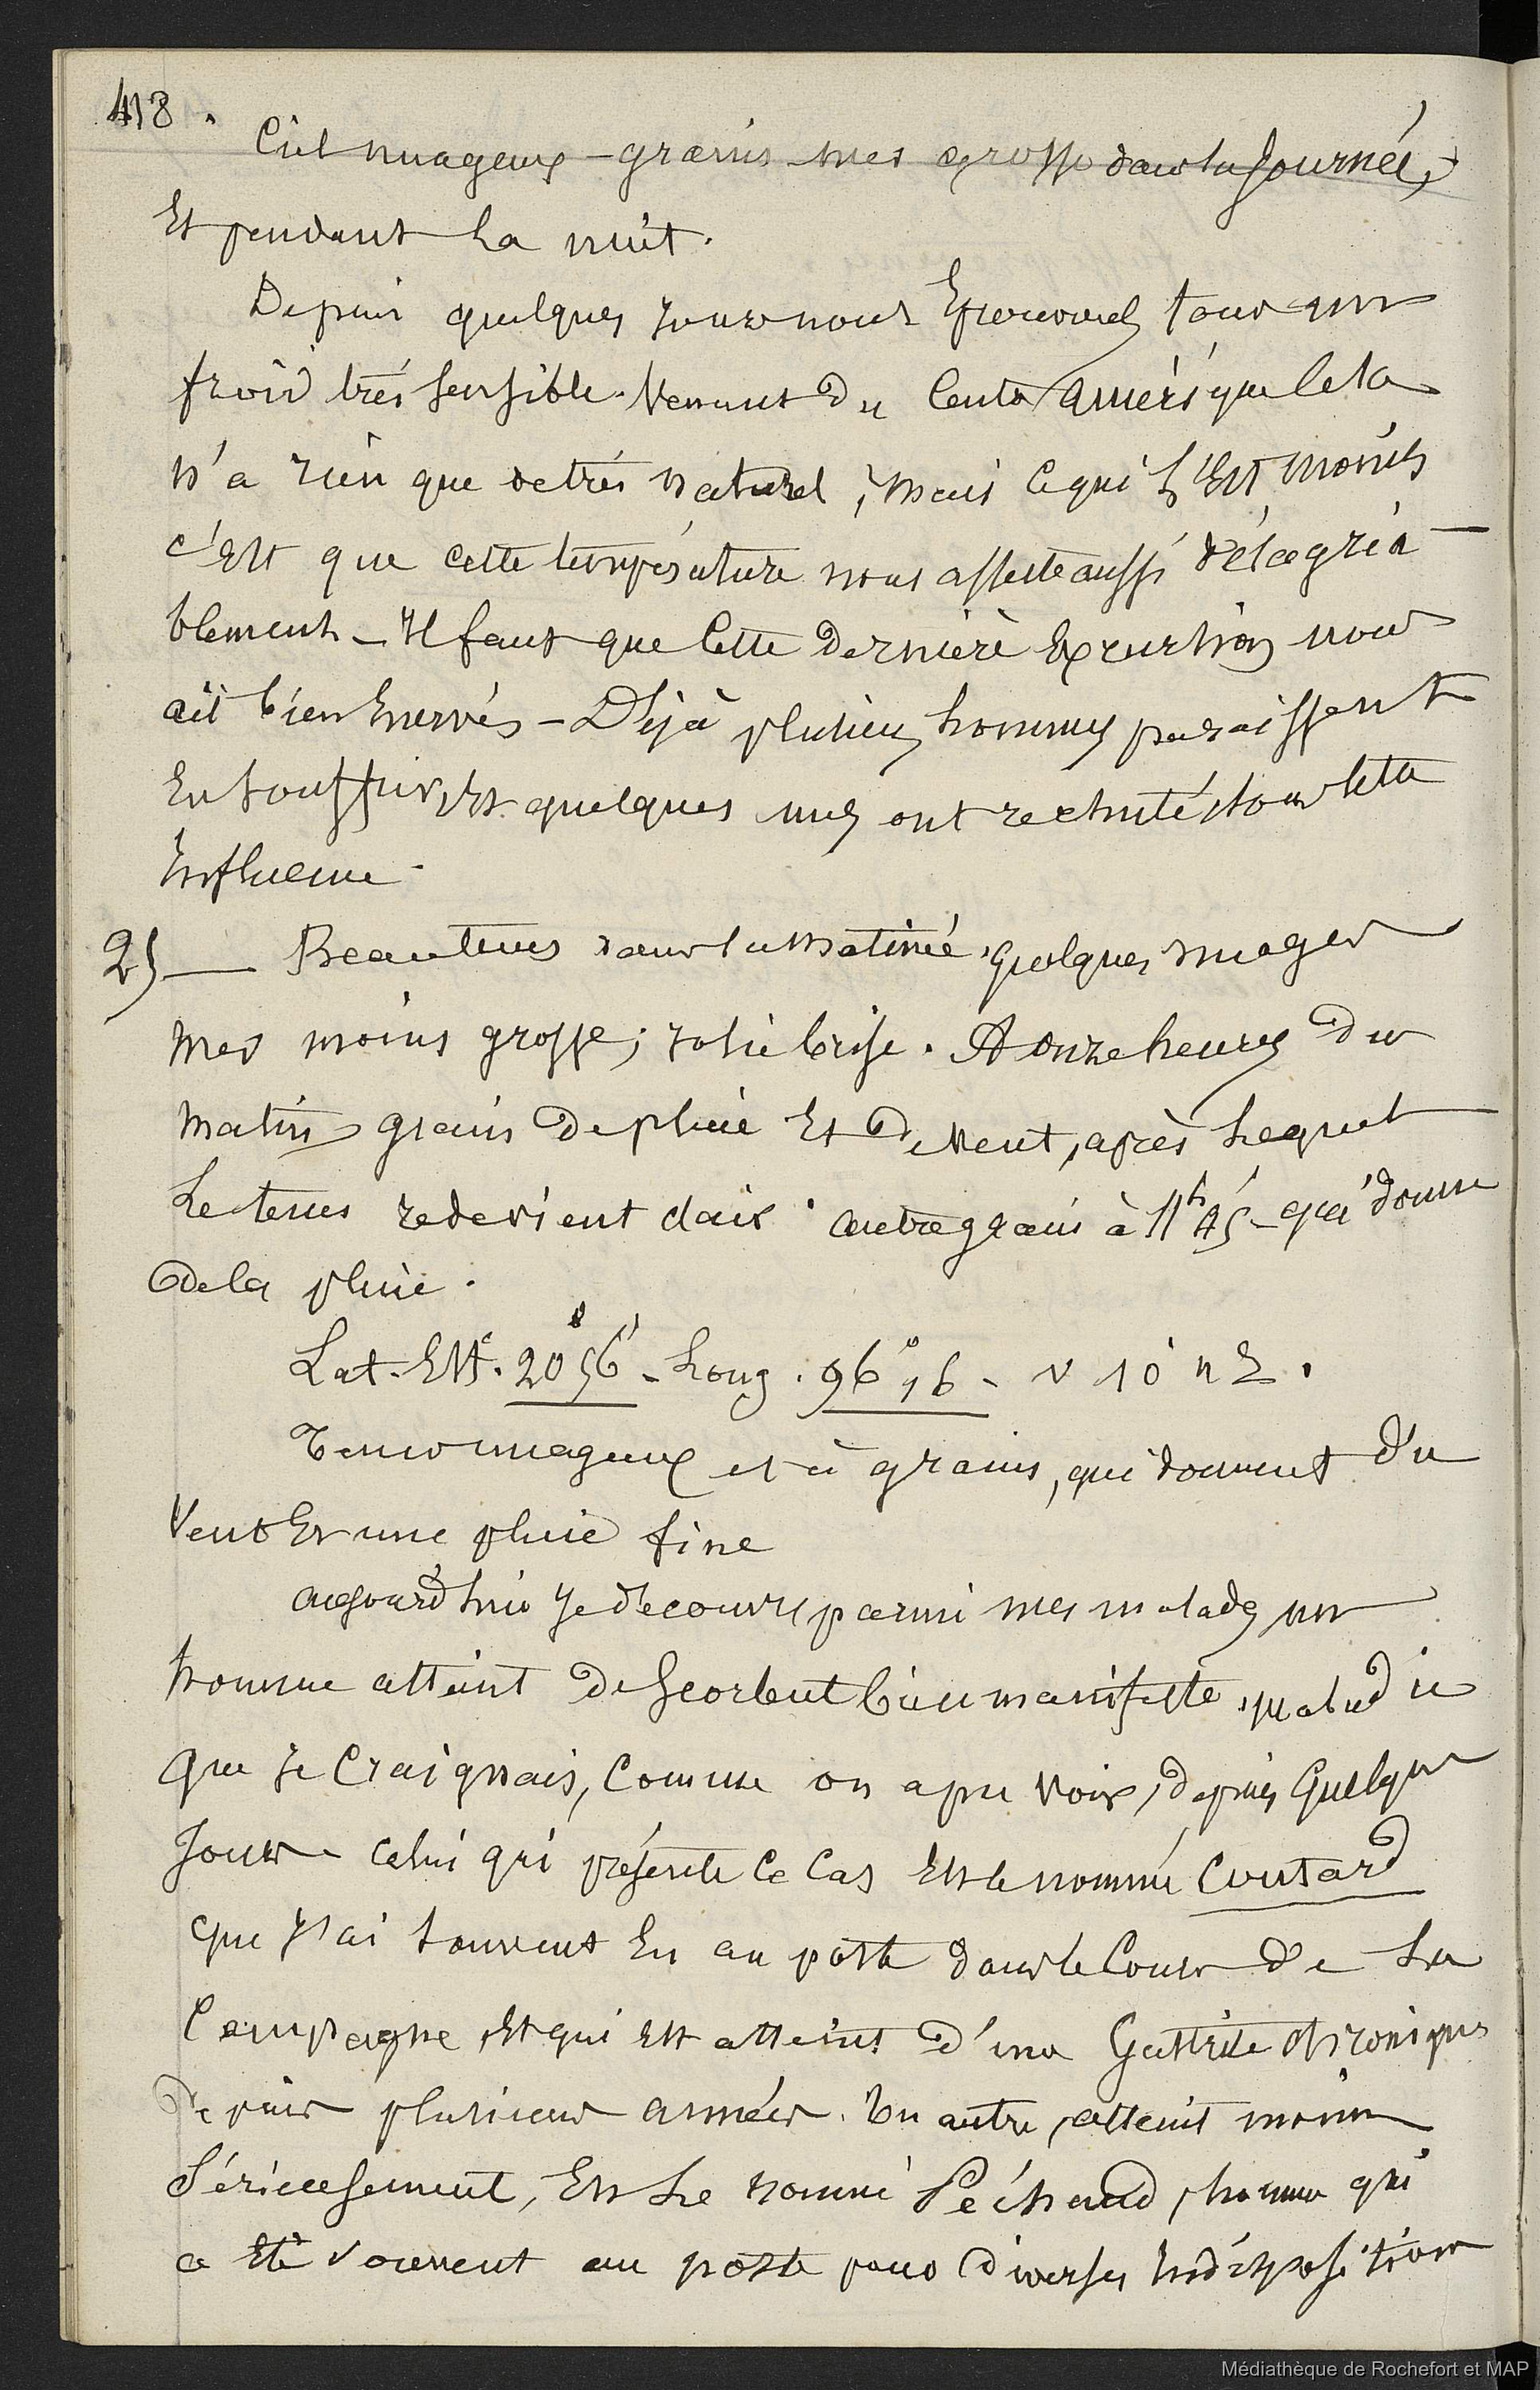 418.
Ciel nuageux – grains mer grosse dans la journée,
Et pendant la nuit.
Depuis quelques jours nous Eprouvons tous un
froid très sensible. Venant du Centre Amérique Cela
n'a rien que de très naturel, mais ce qui l'Est moins
c'Est que cette température nous affecte aussi désagréa-
blement – Il faut que Cette Dernière Excursion nous
ait bien Enervés – Déjà plusieurs hommes paraissent
En souffrir, Et quelques uns ont rechuté sous cette
Influence.
25 — Beau temps dans la matinée, quelques nuages
mer moins grosse; jolie brise. A onze heures du
matin grains de pluie Et de vent, après lequel
Le temps redevient clair. autre grain à 11h 45 – qui donne
de la pluie.
Lat. Est. 20° 56' – Long. 96° 16 – V 10 n E.
Temps nuageux et à grains, qui donnent du
Vent Et une pluie fine
aujourd'hui Je découvre parmi mes malades un
homme atteint de scorbut bien manifeste, maladie
que Je Craignais, Comme on a pu Voir, depuis quelques
Jours – Celui qui présente Ce Cas Est le nommé Coutard
que J'ai souvent Eu au poste dans le Cours de La
Campagne, Et qui Est atteint d'une Gastrite chronique
Depuis plusieurs années. Un autre, atteint moins
Sérieusement, Est Le nommé Péchaud, homme qui
a Eté souvent au poste pour diverses Indispositions
Médiathèque de Rochefort et MAP